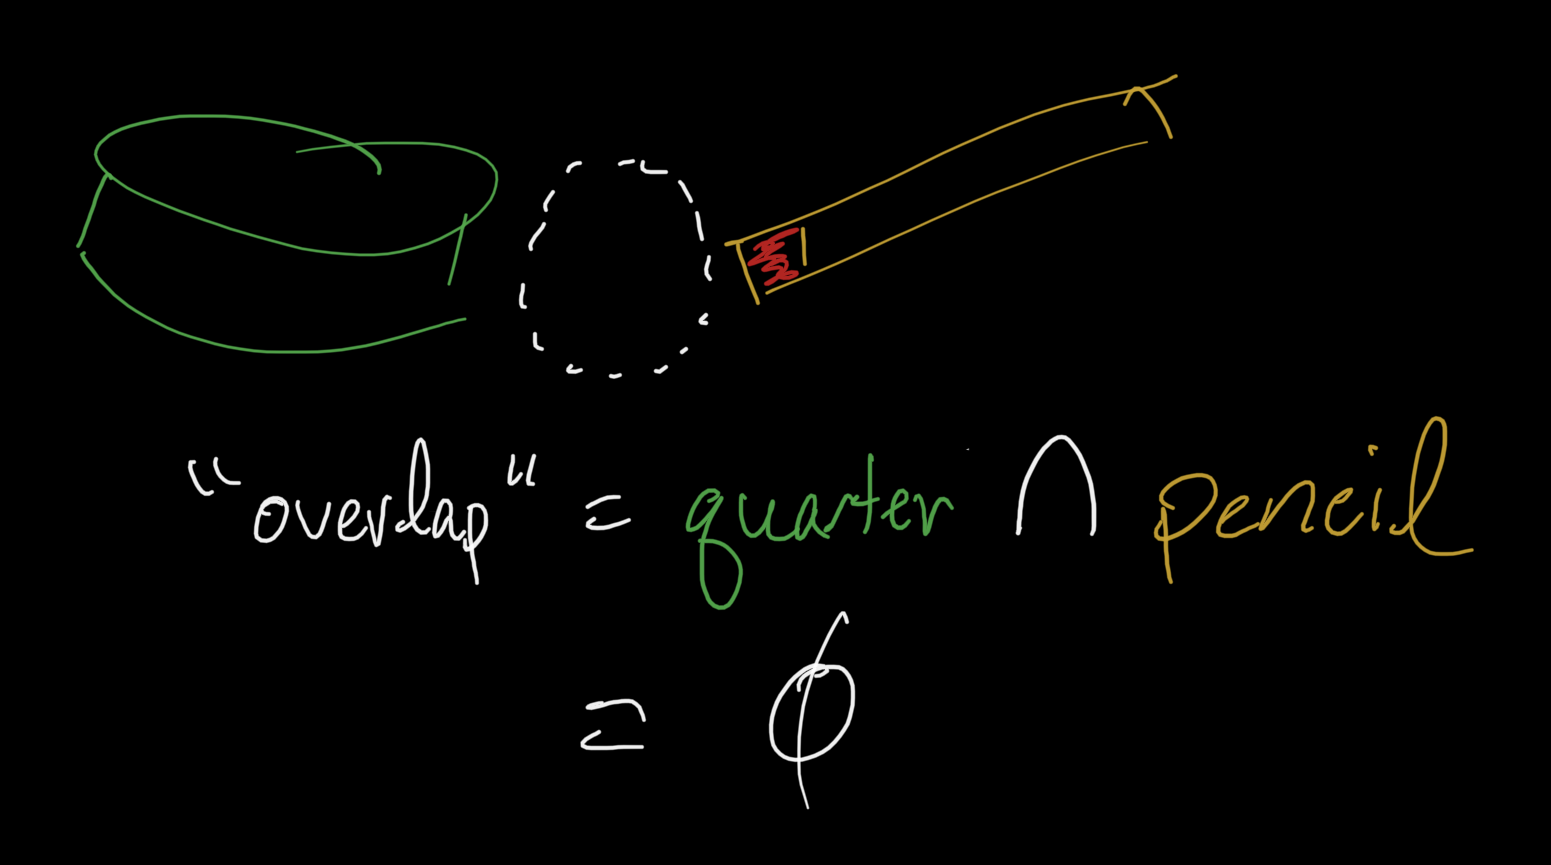 "overlap" = quarter ∩ pencil
= ∅